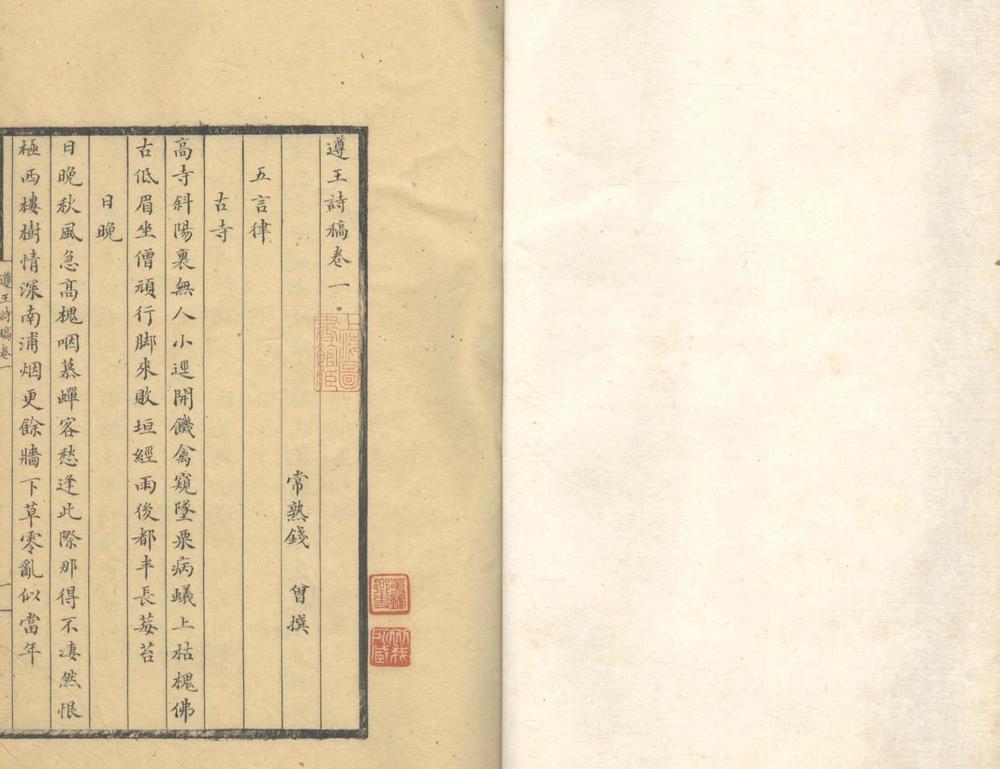 遵王詩稿卷一
常熟錢 曾撰
五言律
古寺
高寺斜陽裏無人小逕開饑禽窺墜粟病蟻上枯槐佛
古低眉坐僧頑行脚來敗垣經雨後都半長莓苔
日晚
日晚秋風急高槐咽慕蟬客愁逢此際那得不凄然恨
極西樓樹情深南浦烟更餘牆下草零亂似當年
遵王詩稿卷一
上海圖書館藏